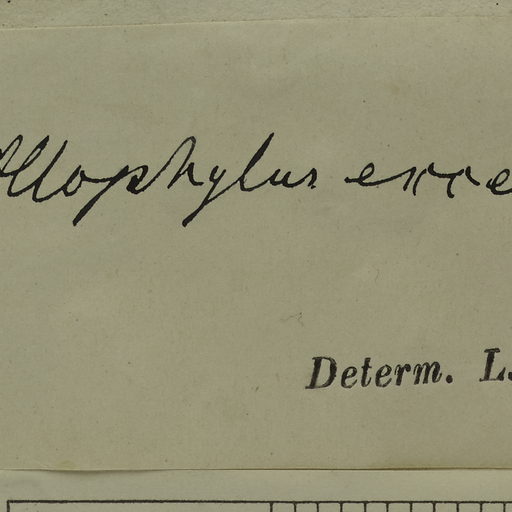 Allophylus exce
Determ. L.